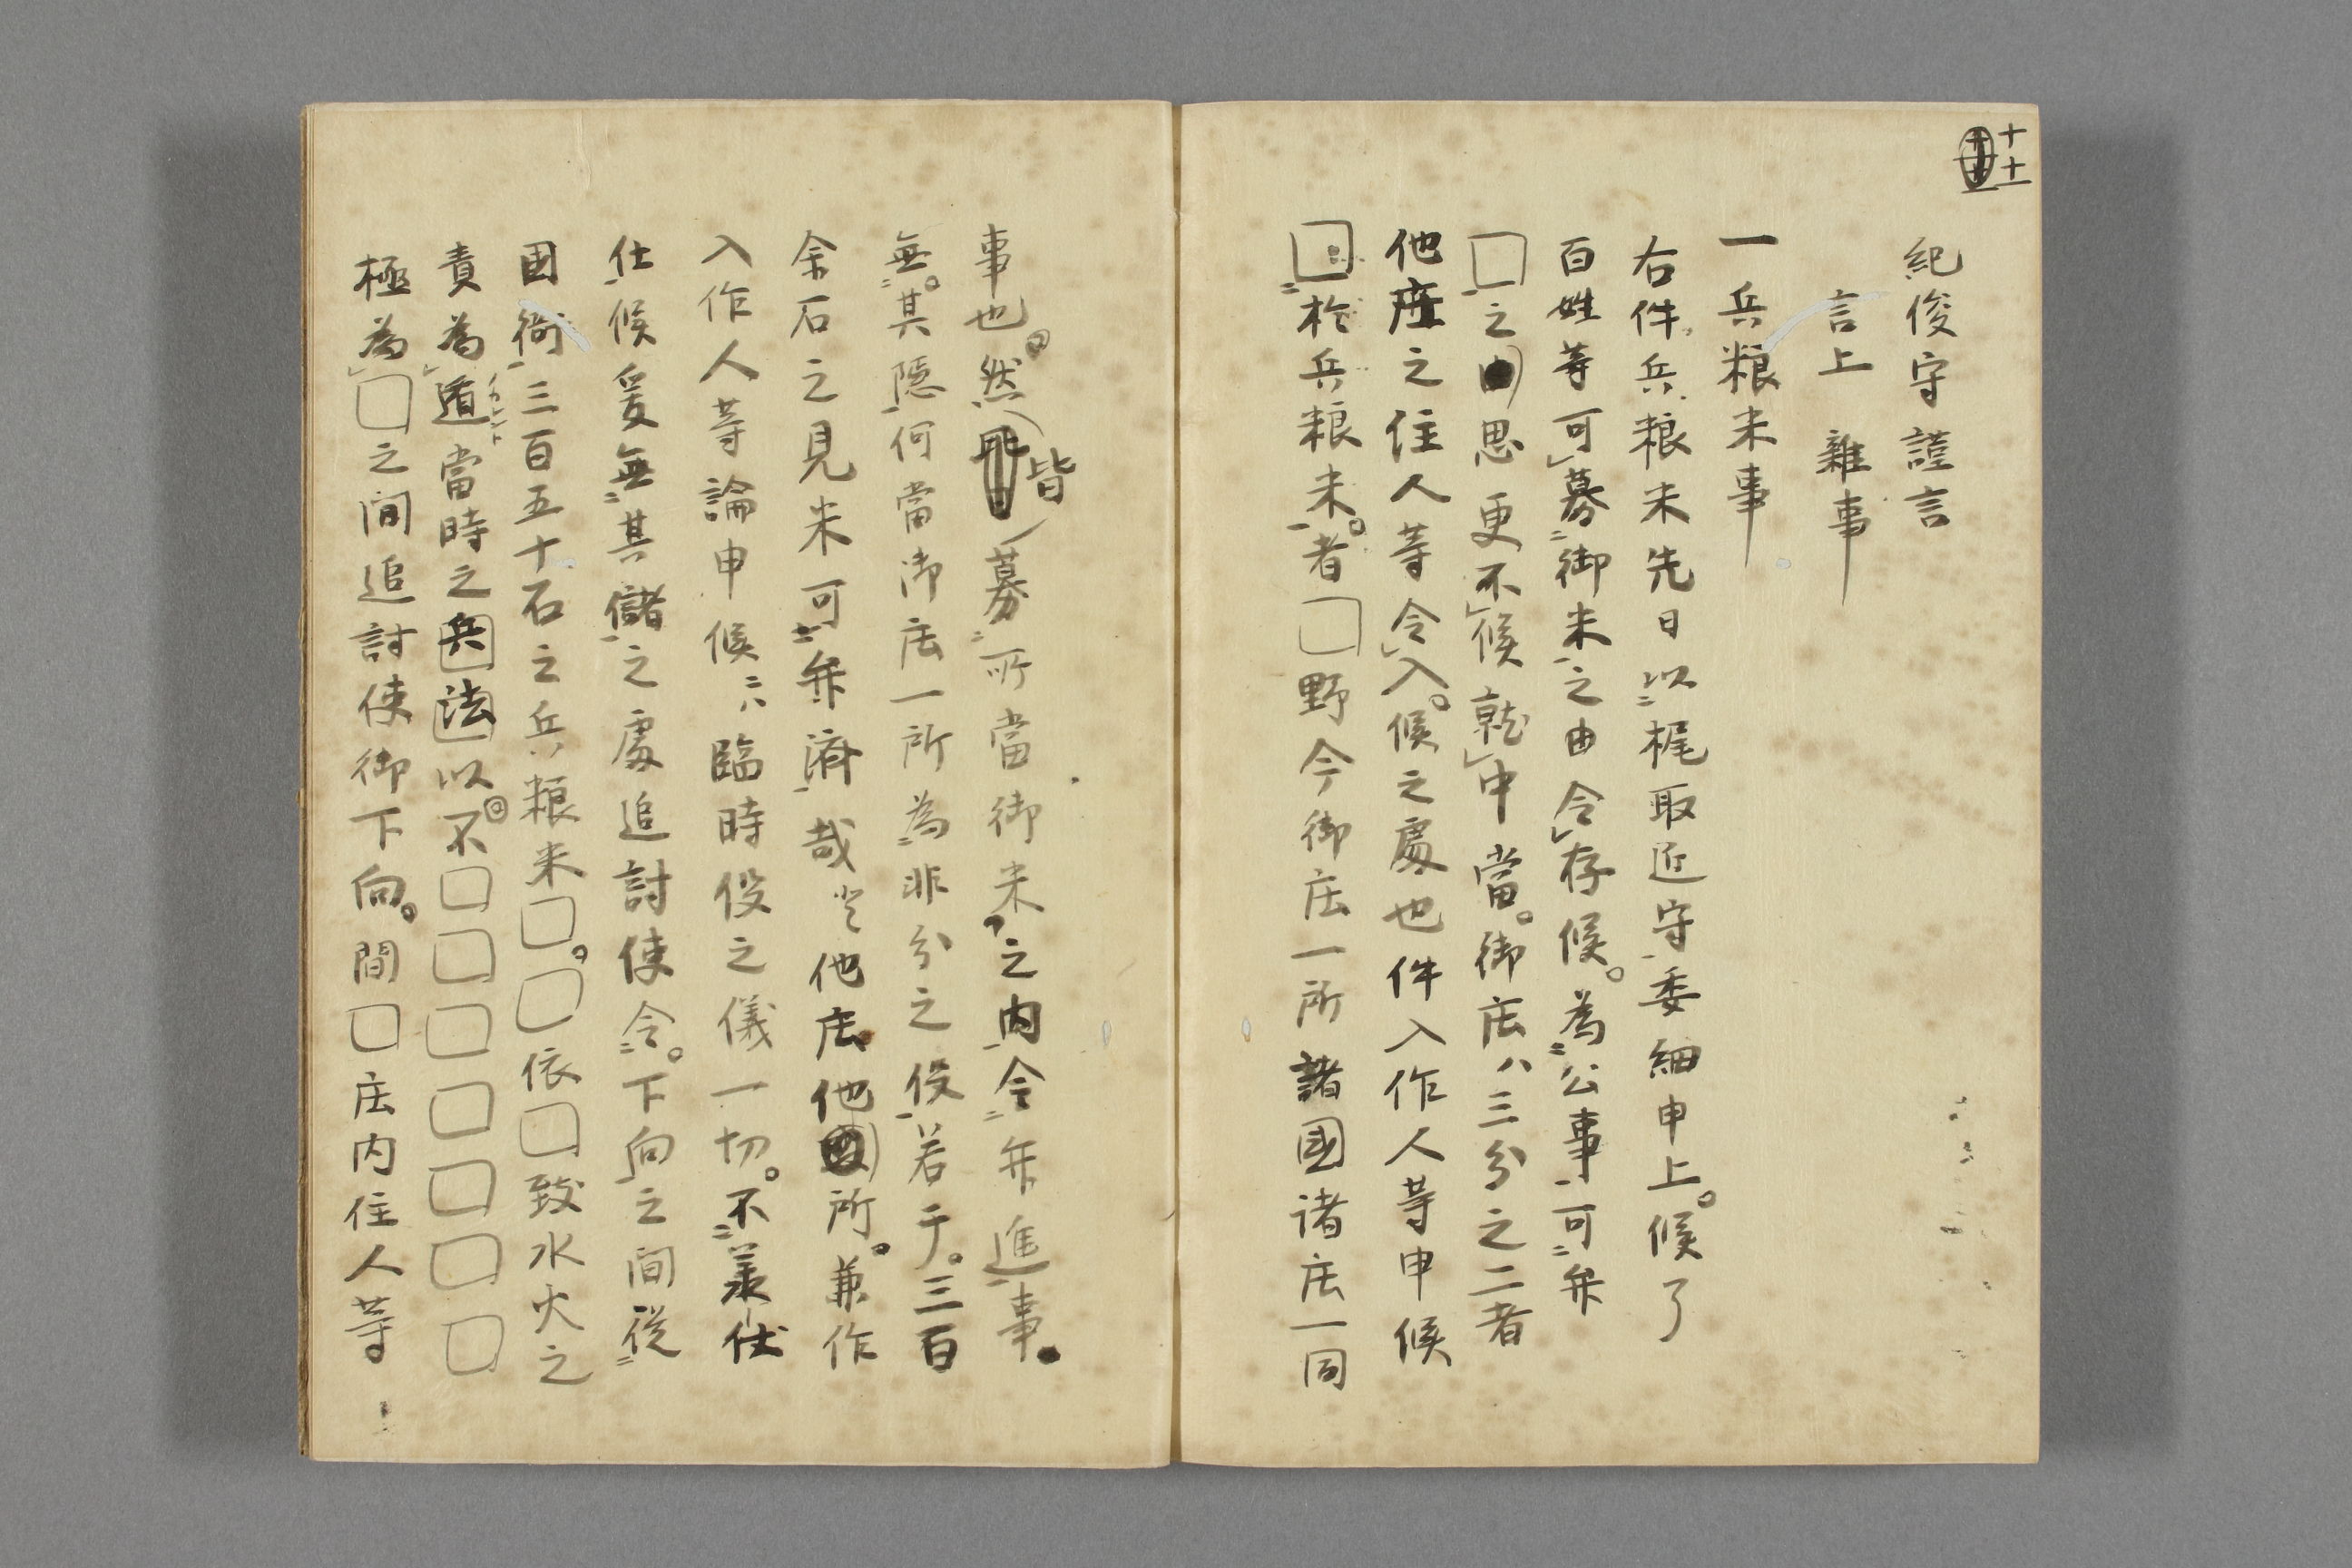 十
十一
紀俊守謹言
言上 雜事
一兵粮米事
右件兵粮米先日以梶取近守委細申上候了
百姓等可募御米之由令存候為公事可弁
□之由思更不候就中當御庄八三分之二者
他庄之住人等令入候之處也件入作人等申候
□於兵粮米者□野今御庄一所諸國諸庄一同
事也然皆募所當御米之内令弁進事
無其隱何當御庄一所為非分之役若于三百
余石之見米可弁濟哉他庄他國所兼作
入作人等論申候ニハ臨時役之儀一切不兼仕
仕候爰無其儲之處追討使令下向之間從
国衙三百五十石之兵粮米□□依□致水火之
責為道當時之兵法以不□□□□□□□
極為□之間追討使御下向間□庄内住人等